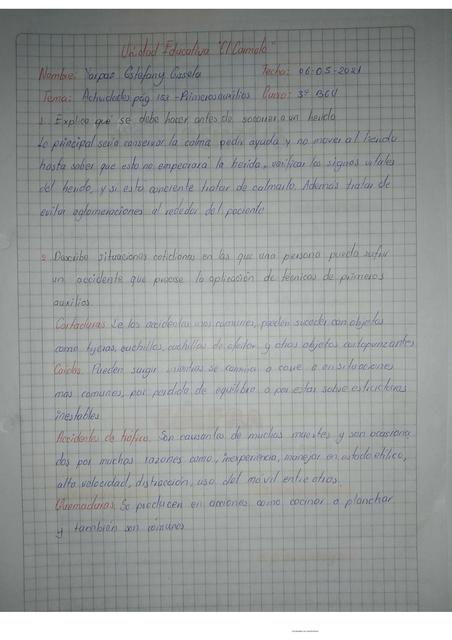 Unidad Educativa "El Carmelo"
Nombre: Yarpaz Estefany Gissela Fecha: 06-05-2021
Tema: Actividades pág 153 - Primeros auxilios Curso: 3º BGU
1. Explica que se debe hacer antes de socorrer a un herido
Lo principal seria conservar la calma pedir ayuda y no mover al herido
hasta saber que esto no empeorara la herida, verificar los signos vitales
del herido, y si esta conciente tratar de calmarlo. Ademas tratar de
evitar aglomeraciones al rededor del paciente
2. Describe situaciones cotidianas en las que una persona pueda sufrir
un accidente que precise la aplicación de técnicas de primeros
auxilios.
Cortaduras. De los accidentes mas comunes, pueden suceder con objetos
como tijeras, cuchillos, cuchillas de afeitar y otros objetos cortopunzantes
Caidas. Pueden surgir mientras se camina o corre o en situaciones
mas comunes, por perdida de equilibrio o por estar sobre estructuras
inestables
Accidentes de tráfico. Son causantes de muchas muertes y son ocasiona
dos por muchas razones como, inexperiencia, manejar en estado etilico,
alta velocidad, distracción, uso del móvil entre otras.
Quemaduras. Se producen en acciones como cocinar o planchar
y también son comunes